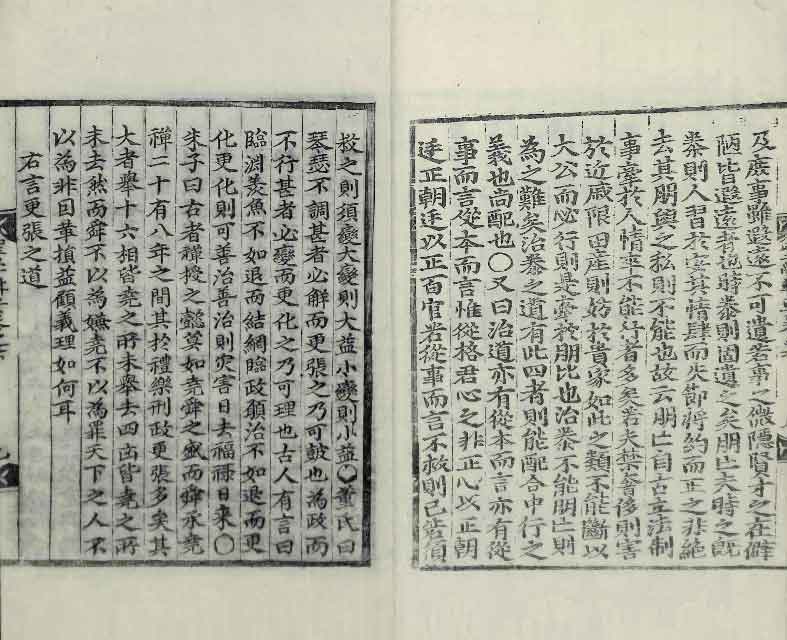 及庶事雖遐遠不可遺若事之微隱賢才之在僻
陋皆遐遠者也時泰則固遺之矣朋亡夫時之既
泰則人習於安其情肆而失節將約而正之非絶
去其朋與之私則不能也故云朋亡自古立法制
事牽於人情卒不能行者多矣若夫禁奢侈則害
於近戚限田産則妨於貴家如此之類不能斷以
大公而必行則是牽於朋比也治泰不能朋亡則
為之難矣治泰之道有此四者則能配合中行之
義也尚配也○又曰治道亦有從本而言亦有從
事而言從本而言惟從格君心之非正心以正朝
廷正朝廷以正百官若從事而言不救則已若須
救之則須變大變則大益小變則小益○董氏曰
琴瑟不調甚者必解而更張之乃可鼓也為政而
不行甚者必變而更化之乃可理也古人有言曰
臨淵羨魚不如退而結網臨政願治不如退而更
化更化則可善治善治則灾害日去福禄日来○
朱子曰古者禪授之懿莫如堯舜之盛而舜承堯
禪二十有八年之間其於禮樂刑政更張多矣其
大者舉十六相皆堯之所未舉去四凶皆堯之所
未去然而舜不以為嫌堯不以為罪天下之人不
以為非因革損益顧義理如何耳
右言更張之道